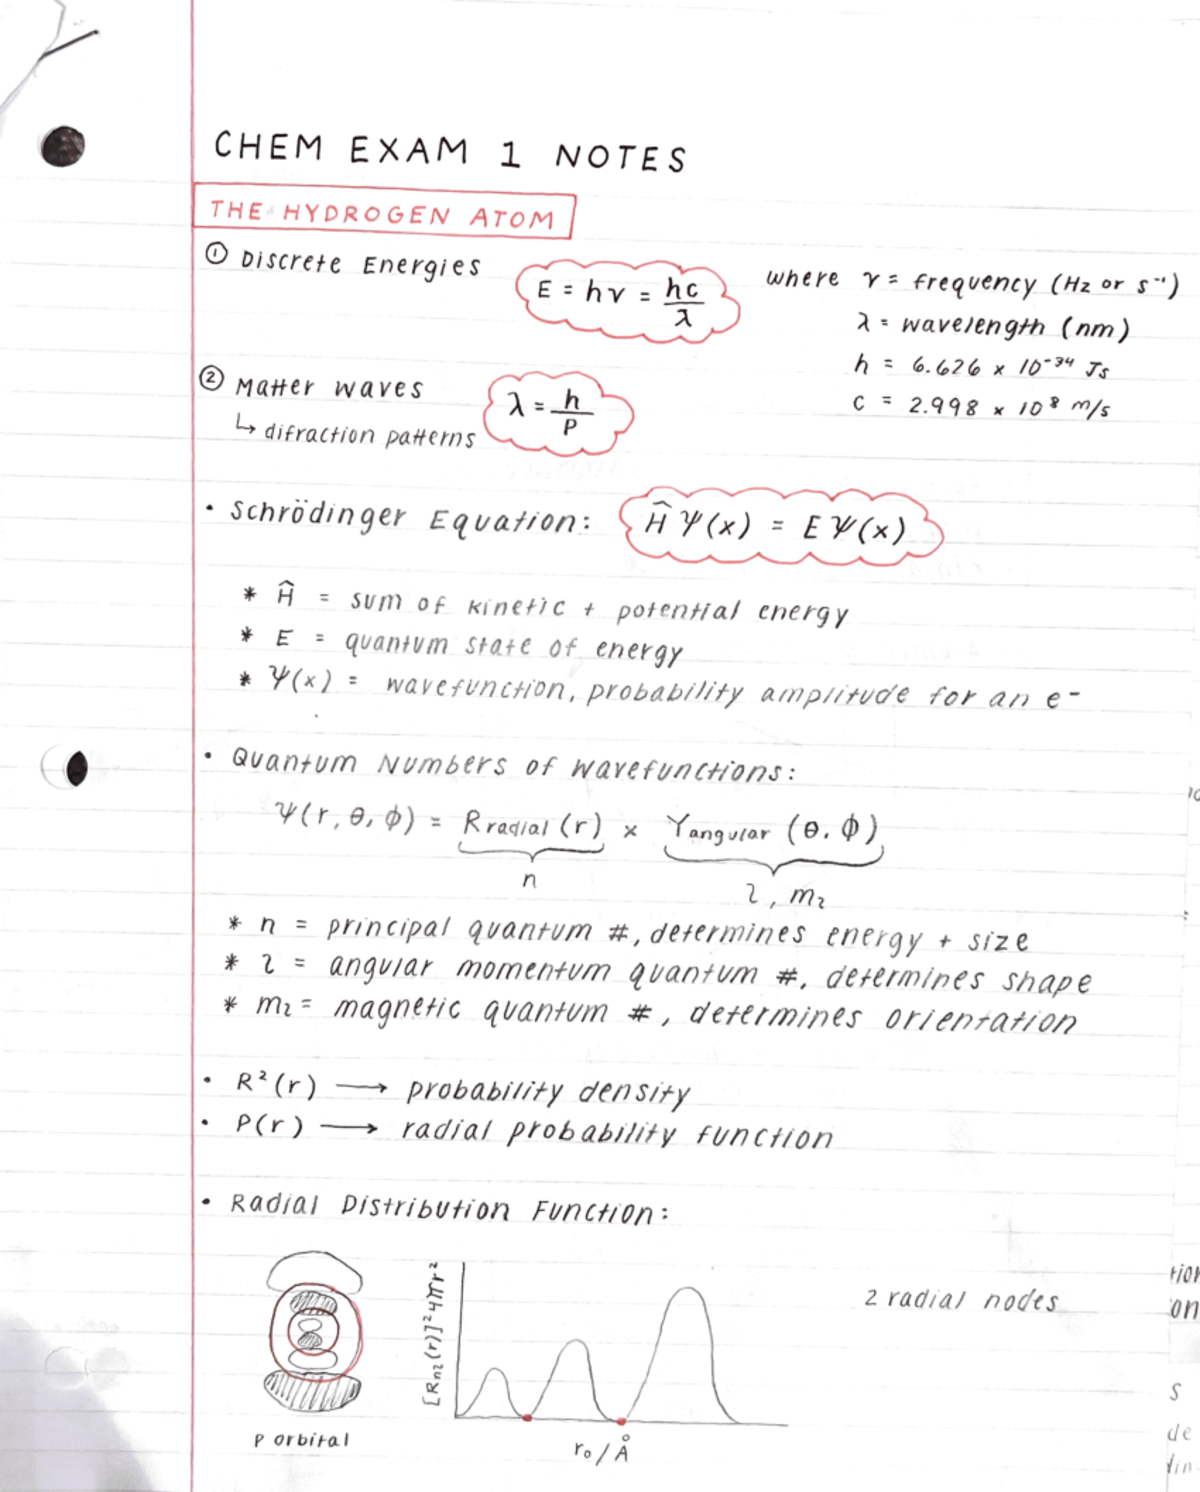 CHEM EXAM 1 NOTES
THE HYDROGEN ATOM
① Discrete Energies
E = hν = hc/λ
where ν = frequency (Hz or s⁻¹)
λ = wavelength (nm)
h = 6.626 x 10⁻³⁴ Js
c = 2.998 x 10⁸ m/s
② Matter waves
↳ difraction patterns
λ = h/P
• Schrödinger Equation: ĤΨ(x) = EΨ(x)
* Ĥ = sum of kinetic + potential energy
* E = quantum state of energy
* Ψ(x) = wavefunction, probability amplitude for an e⁻
• Quantum Numbers of wavefunctions:
Ψ(r, θ, φ) = Rradial (r) x Yangular (θ, φ)
n
l, mₗ
* n = principal quantum #, determines energy + size
* l = angular momentum quantum #, determines shape
* mₗ = magnetic quantum #, determines orientation
• R²(r) → probability density
• P(r) → radial probability function
• Radial Distribution Function:
[Rnl(r)]²4πr²
2 radial nodes
P orbital
r₀/Å
s
de